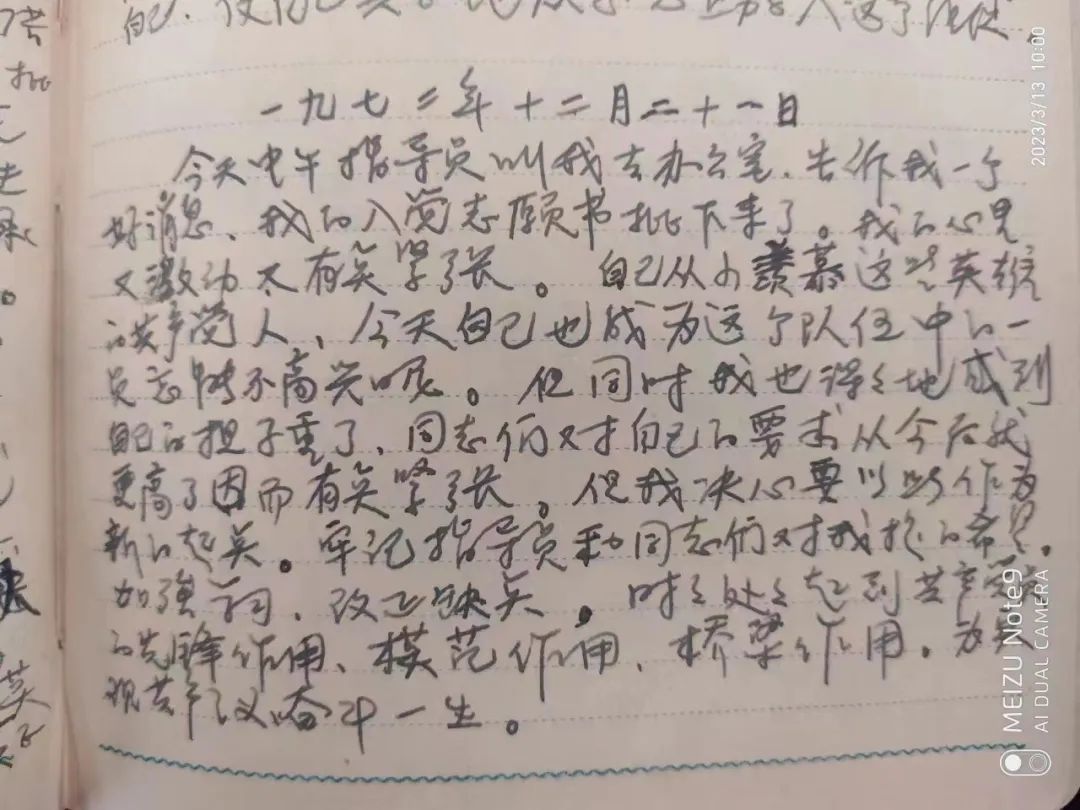 自己
一九七二年十二月二十一日
今天中午指导员叫我去办公室,告诉我一个
好消息、我的入党志愿书批下来了。我的心里
又激动又有点紧张。自己从小羡慕这些英雄
的共产党人、今天自己也成为这个队伍中的一
员怎能不高兴呢。但同时我也深深地感到
自己的担子重了、同志们对自己的要求从今后就
更高了因而有点紧张。但我决心要以此作为
新的起点。牢记指导员和同志们对我提的希望.
加强学习、改正缺点。时时处处起到共产党员
的先锋作用、模范作用、桥梁作用。为实
现共产主义奋斗一生。
2023/3/13 10:00
MEIZU Note9
AI DUAL CAMERA